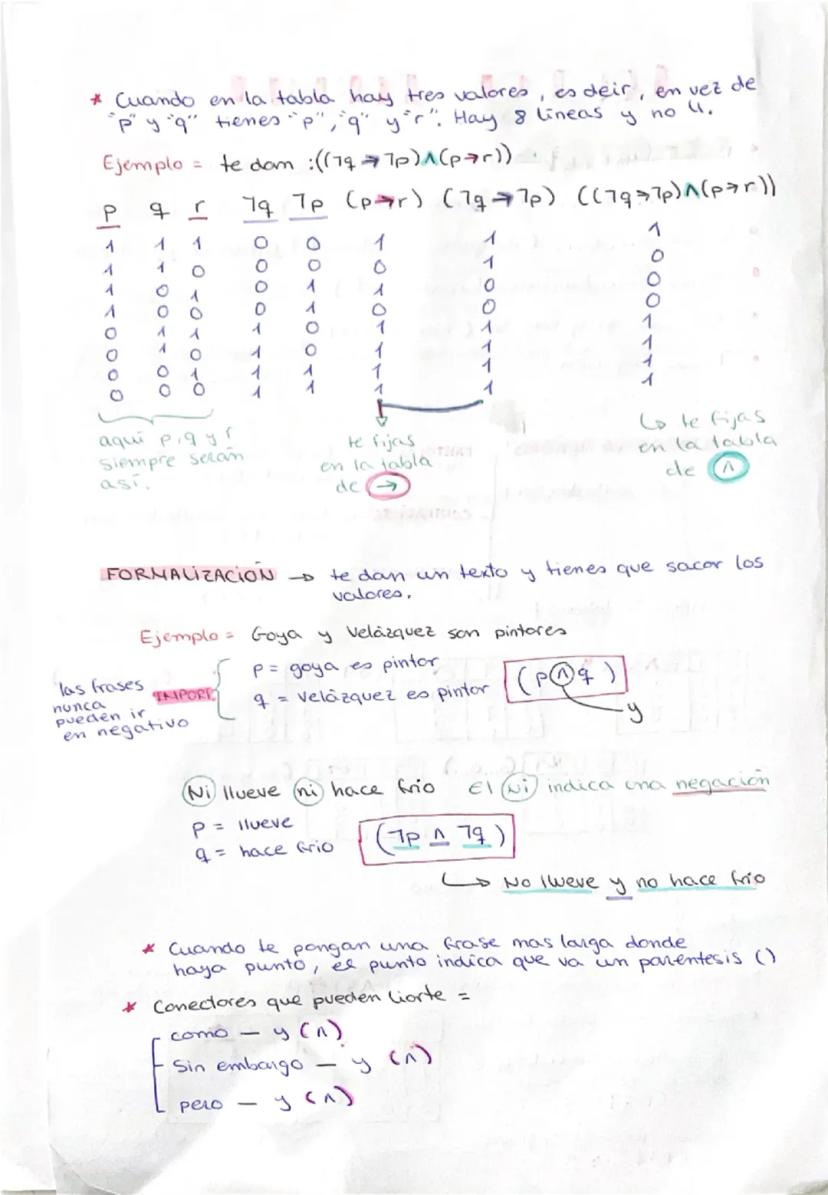 * Cuando en la tabla hay tres valores, es deir, en vez de
"p" y "q" tienes "p", "q" y "r". Hay 8 líneas y no 4.
Ejemplo = te dan :((¬q → ¬p)∧(p→r))
p q r ¬q ¬p (p→r) (¬q→¬p) ((¬q→¬p)∧(p→r))
1 1 1 0 0 1 1 1
1 1 0 0 0 0 1 0
1 0 1 0 1 1 0 0
1 0 0 0 1 0 0 0
0 1 1 1 0 1 1 1
0 1 0 1 0 1 1 1
0 0 1 1 1 1 1 1
0 0 0 1 1 1 1 1
aquí p, q y r
siempre serán
así.
te fijas
en la tabla
de →
↳ te fijas
en la tabla
de ∧
FORMALIZACIÓN → te dan un texto y tienes que sacar los
valores.
Ejemplo = Goya y Velázquez son pintores
las frases
nunca
pueden ir
en negativo
IMPORT
p = goya es pintor
q = Velázquez es pintor
(p ∧ q)
y
Ni llueve ni hace frío El Ni indica una negación
p = llueve
q = hace frío
(¬p ∧ ¬q)
↳ No llueve y no hace frío
* Cuando te pongan una frase mas larga donde
haya punto, el punto indica que va un paréntesis ()
* Conectores que pueden liarte =
como — y (∧)
Sin embargo — y (∧)
pero — y (∧)